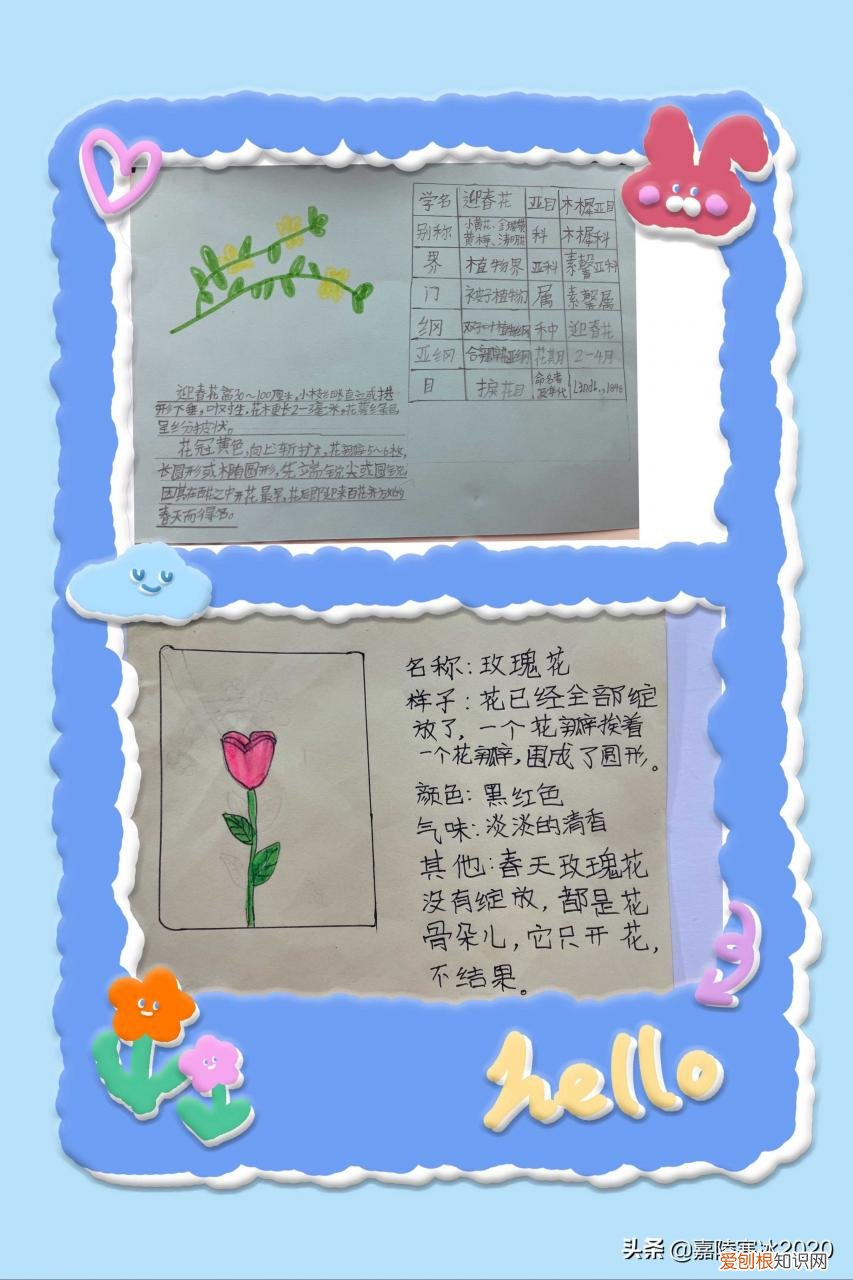 学名 迎春花 亚目 木樨亚目
别称 小黄花、金腰带 黄梅、清明 科 木樨科
界 植物界 亚科 素馨亚科
门 被子植物门 属 素馨属
纲 双子叶植物纲 种 迎春花
亚纲 合瓣花亚纲 花期 2-4月
目 捩花目 命名者及年代 Lindl.,
迎春花高30~100厘米,小枝细长直立或拱
形下垂,叶对生,花梗长2-3毫米,花萼绿色
呈
花冠黄色,向上渐扩大,花瓣5~6枚,
长圆形或椭圆形,先端锐尖或圆钝
因其在百花之中开花最早,花后即迎来百花齐放的
春天而得名。
名称:玫瑰花
样子:花已经全部绽
放了,一个花瓣挨着
一个花瓣,围成了圆形。
颜色:黑红色
气味:淡淡的清香
其他:春天玫瑰花
没有绽放,都是花
骨朵儿,它只开花,
不结果。
hello
头条 @嘉陵寒冰2020
爱刨根知识网